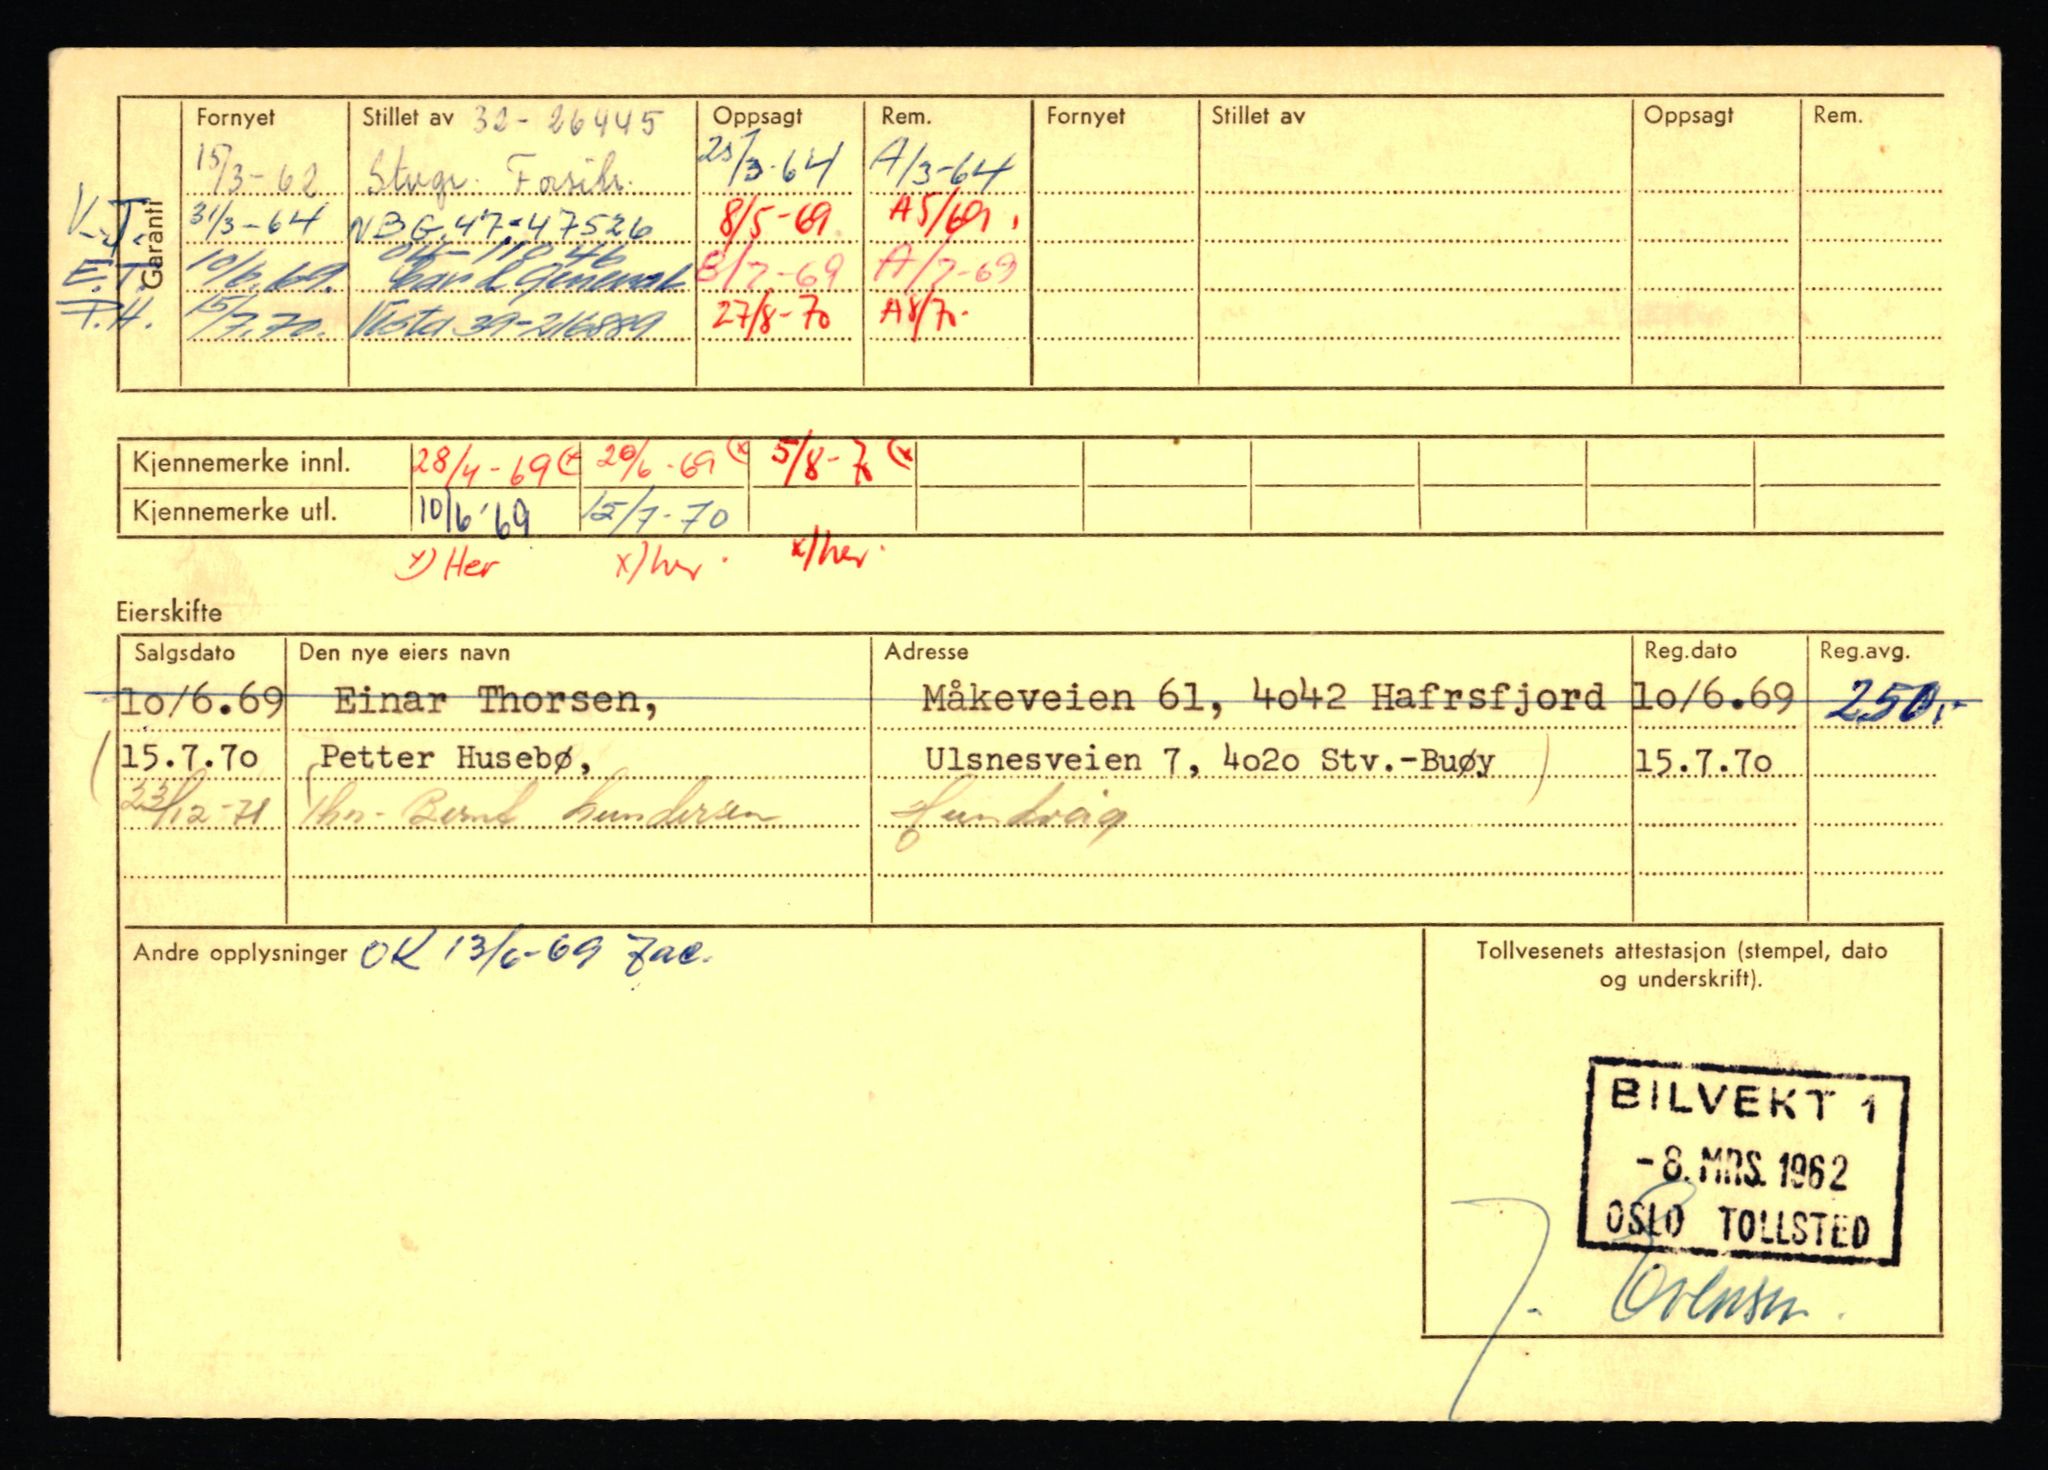 Garanti
Fornyet Stillet av 32-26445 Oppsagt Rem. Fornyet Stillet av Oppsagt Rem.
15/3-62 Stvgr. Forsikr. 25/3-64 A/3-64
V.T. 31/3-64 NBG. 47-47526 8/5-69 A5/69.
04-110 46
E.T. 10/6.69. General 8/7-69 A/7-69
P.H. 15/7.70. Vesta 39-216889 27/8-70 A8/70.
Kjennemerke innl. 28/4-69 (x 20/6-69 (x 5/8-70 (x
Kjennemerke utl. 10/6-69 15/7-70
x) Her x) her. x) her.
Eierskifte
Salgsdato Den nye eiers navn Adresse Reg.dato Reg.avg.
10/6.69 Einar Thorsen, Måkeveien 61, 4042 Hafrsfjord 10/6.69 250,-
(15.7.70 Petter Husebø, Ulsnesveien 7, 4020 Stv.-Buøy) 15.7.70
23/12-71 Thor-Bernt Gundersen Hundvåg
Andre opplysninger OK 13/6-69
Tollvesenets attestasjon (stempel, dato
og underskrift).
BILVEKT 1
-8. MRS. 1962
OSLO TOLLSTED
J. Evensen.